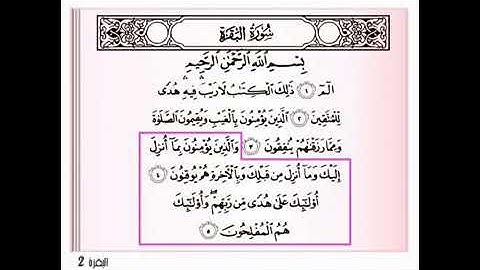 سُورَةُ البَقَرَةِ
بِسْمِ اللَّهِ الرَّحْمَٰنِ الرَّحِيمِ
الٓمٓ ١ ذَٰلِكَ الْكِتَٰبُ لَا رَيْبَ فِيهِ هُدًى
لِلْمُتَّقِينَ ٢ الَّذِينَ يُؤْمِنُونَ بِالْغَيْبِ وَيُقِيمُونَ الصَّلَوٰةَ
وَمِمَّا رَزَقْنَٰهُمْ يُنفِقُونَ ٣ وَالَّذِينَ يُؤْمِنُونَ بِمَآ أُنزِلَ
إِلَيْكَ وَمَآ أُنزِلَ مِن قَبْلِكَ وَبِالْآخِرَةِ هُمْ يُوقِنُونَ ٤
أُوْلَٰٓئِكَ عَلَىٰ هُدًى مِّن رَّبِّهِمْ ۖ وَأُوْلَٰٓئِكَ
هُمُ الْمُفْلِحُونَ ٥
البقرة 2